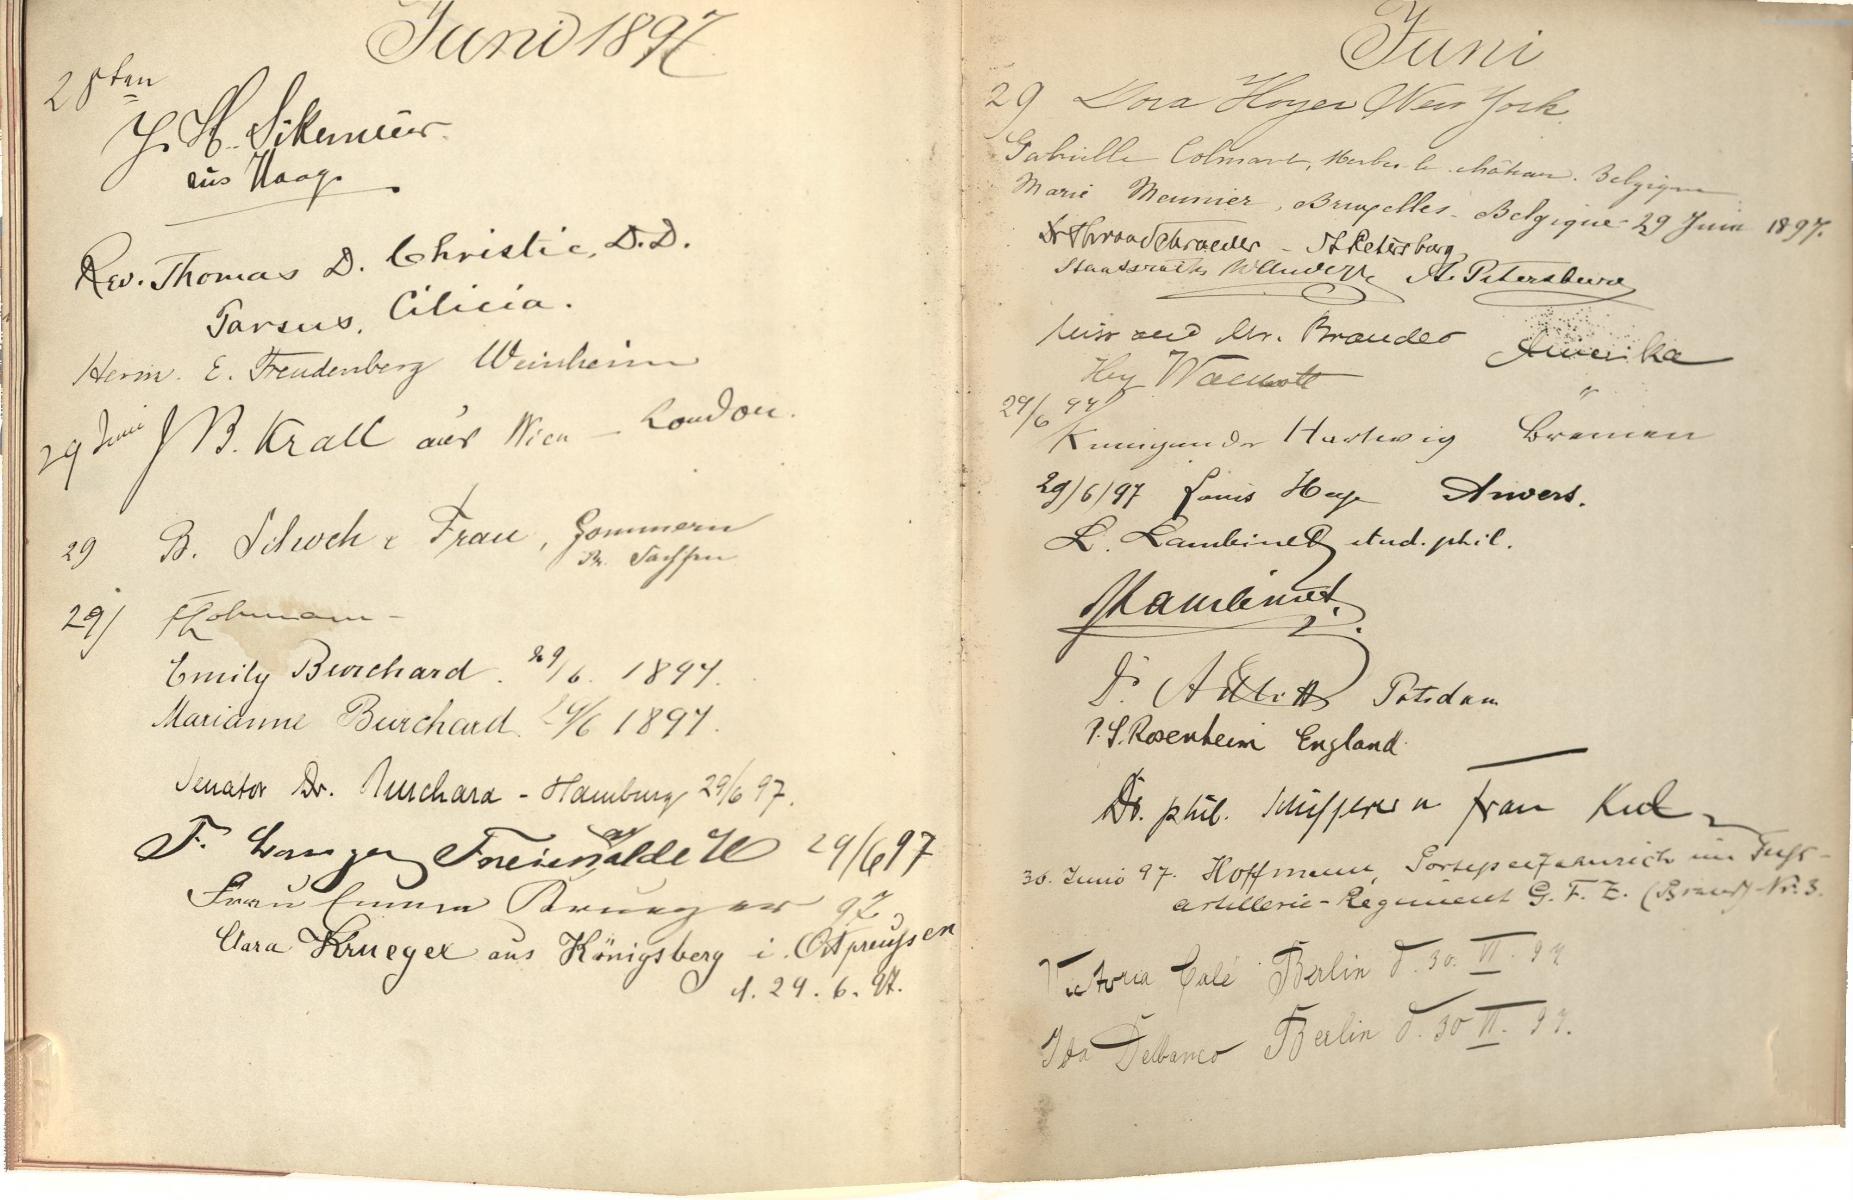 Juni 1897
28ten
J. H. Sikemeier
aus Haag.
Rev. Thomas D. Christie, D.D.
Tarsus, Cilicia.
Herm. E. Freudenberg Weinheim
29 Juni J B. Krall aus Wien – London.
29 B. Schoch & Frau, Gommern
Pr. Sachsen
29/
Emily Burchard. 29/6. 1897.
Marianne Burchard. 29/6 1897.
Senator Dr. Burchard - Hamburg 29/6 97.
F. Freienwalde 29/6 97
Frau Emma Krueger 97
Clara Krueger aus Königsberg i. Ostpreußen
d. 29. 6. 97.
Juni
29 Dora Hoyer New York
Gabrielle Colmart, Merbes le château. Belgique
Marie Meunier, Bruxelles - Belgique - 29 Juin 1897.
Dr Schroeder - St. Petersburg,
Staatsrath St. Petersburg
Miss and Mr. Brandes Amerika
Hy "
29/6 97
Kunigunde Hartwig Bremen
29/6/97 Louis Anvers.
L. Lambinet stud. phil.
Lambinet.
Dr. Potsdam
P. S. Rosenheim England.
Dr. phil. Schifferer u Frau Kiel
30. Juni 97. Hoffmann, Portepeefähnrich im Fuß-
artillerie-Regiment G. F. Z. (Brand) Nr. 3.
Victoria Calé Berlin d. 30. VI. 97
Ida Delbanco Berlin d. 30 VI. 97.